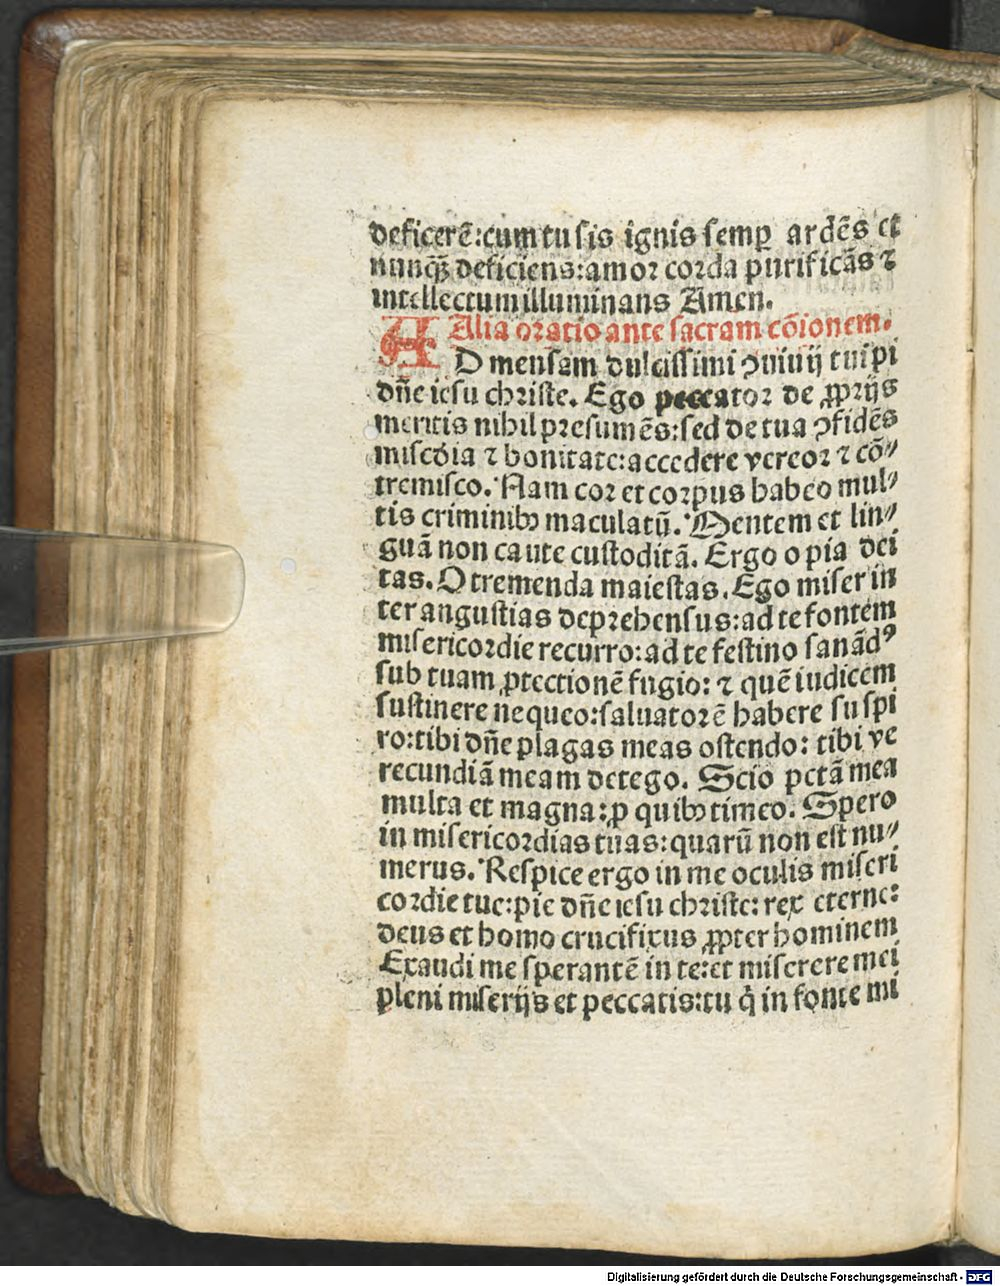 deficerē:cum tu sis ignis semꝑ ardēs et
nunqꝫ deficiens:amoꝛ coꝛda purificās ⁊
intellectum illuminans Amen.
Alia oꝛatio ante sacram cōionem.
AD mensam dulcissimi ꝯuiuij tui pi
dn̄e iesu chꝛiste. Ego peccatoꝛ de ꝓpꝛijs
meritis nihil pꝛesumēs:sed de tua ꝯfidēs
miscd̄ia ⁊ bonitate:accedere vereoꝛ ⁊ cō⸗
tremisco. Nam coꝛ et coꝛpus habeo mul⸗
tis criminibꝰ maculatū. Mentem et lin⸗
guā non caute custoditā. Ergo o pia dei
tas. O tremenda maiestas. Ego miser in
ter angustias depꝛehensus:ad te fontem
misericoꝛdie recurro:ad te festino sanādꝰ
sub tuam ꝓtectionē fugio: ⁊ quē iudicem
sustinere nequeo:saluatoꝛē habere suspi
ro:tibi dn̄e plagas meas ostendo: tibi ve
recundiā meam detego. Scio pctā mea
multa et magna:ꝓ quibꝰ timeo. Spero
in misericoꝛdias tuas:quarū non est nu⸗
merus. Respice ergo in me oculis miseri
coꝛdie tue:pie dn̄e iesu chꝛiste: rex eterne:
deus et homo crucifixus ꝓpter hominem
Exaudi me sperantē in te:et miserere mei
pleni miserijs et peccatis:tu q̇ in fonte mi
Digitalisierung gefördert durch die Deutsche Forschungsgemeinschaft - DFG